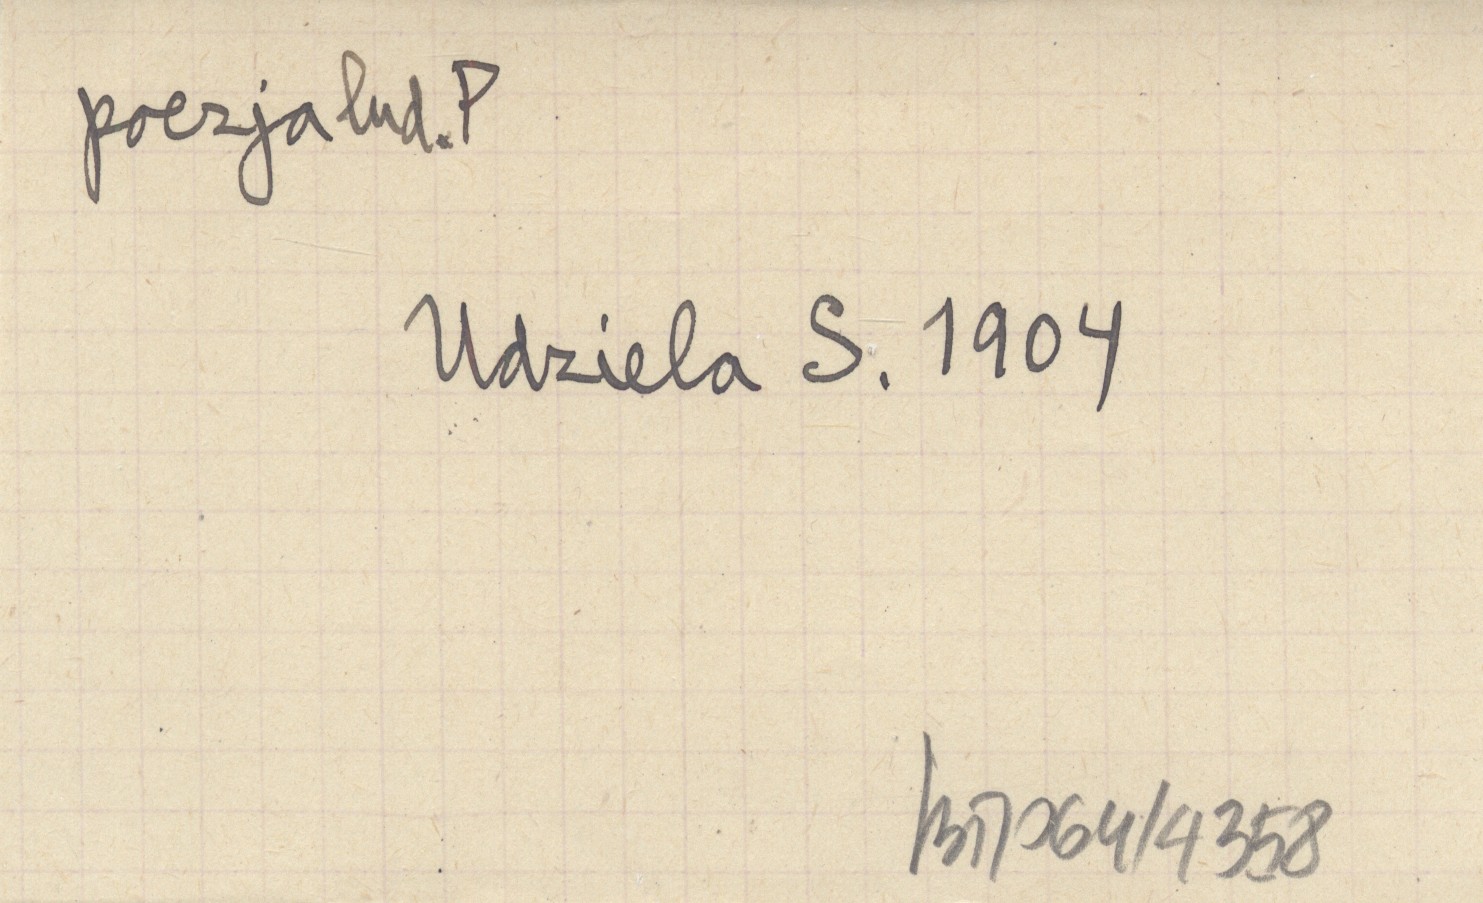 poezja lud. P
Udziela S. 1904
64/4358